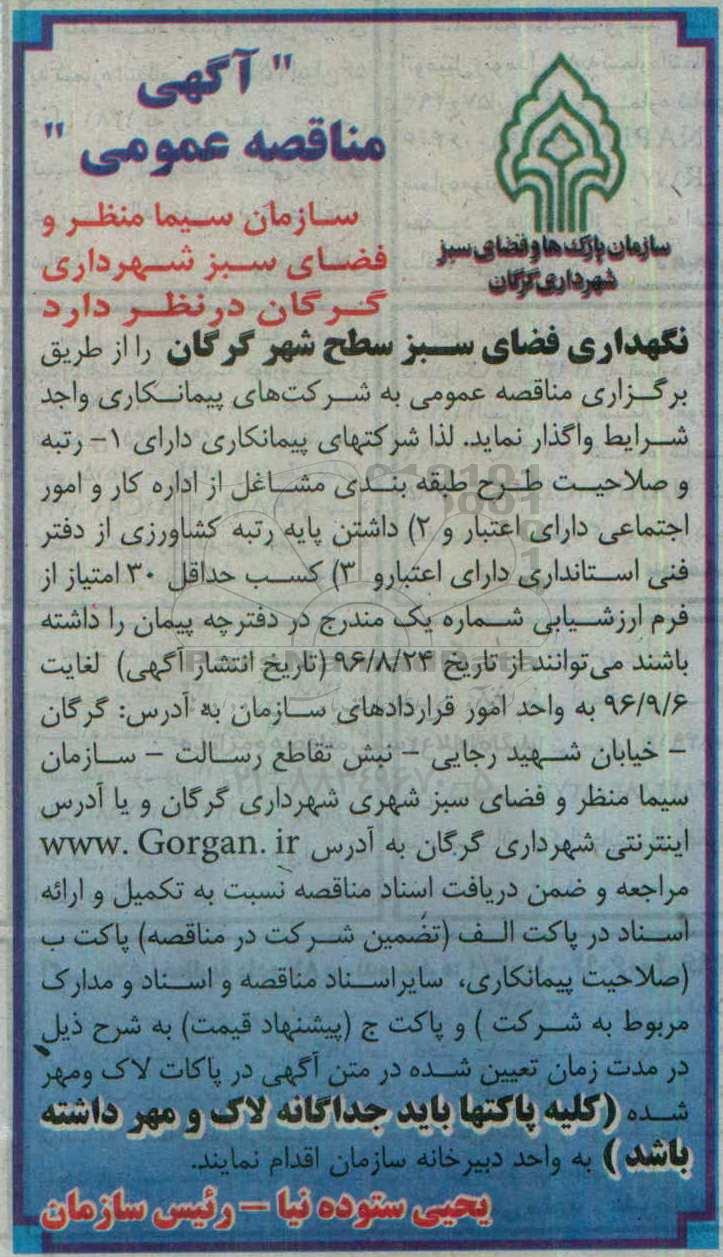 " آگهی
مناقصه عمومی "
سازمان پارک ها و فضای سبز
شهرداری گرگان
سازمان سیما منظر و
فضای سبز شهرداری
گرگان درنظر دارد
نگهداری فضای سبز سطح شهر گرگان را از طریق
برگزاری مناقصه عمومی به شرکت‌های پیمانکاری واجد
شرایط واگذار نماید. لذا شرکتهای پیمانکاری دارای ۱- رتبه
و صلاحیت طرح طبقه بندی مشاغل از اداره کار و امور
اجتماعی دارای اعتبار و ۲) داشتن پایه رتبه کشاورزی از دفتر
فنی استانداری دارای اعتبارو ۳) کسب حداقل ۳۰ امتیاز از
فرم ارزشیابی شماره یک مندرج در دفترچه پیمان را داشته
باشند می‌توانند از تاریخ ۹۶/۸/۲۴ (تاریخ انتشار آگهی) لغایت
۹۶/۹/۶ به واحد امور قراردادهای سازمان به آدرس: گرگان
- خیابان شهید رجایی - نبش تقاطع رسالت - سازمان
سیما منظر و فضای سبز شهری شهرداری گرگان و یا آدرس
اینترنتی شهرداری گرگان به آدرس www. Gorgan. ir
مراجعه و ضمن دریافت اسناد مناقصه نسبت به تکمیل و ارائه
اسناد در پاکت الف (تضمین شرکت در مناقصه) پاکت ب
(صلاحیت پیمانکاری، سایراسناد مناقصه و اسناد و مدارک
مربوط به شرکت ) و پاکت ج (پیشنهاد قیمت) به شرح ذیل
در مدت زمان تعیین شده در متن آگهی در پاکات لاک ومهر
شده (کلیه پاکتها باید جداگانه لاک و مهر داشته
باشد) به واحد دبیرخانه سازمان اقدام نمایند.
یحیی ستوده نیا - رئیس سازمان